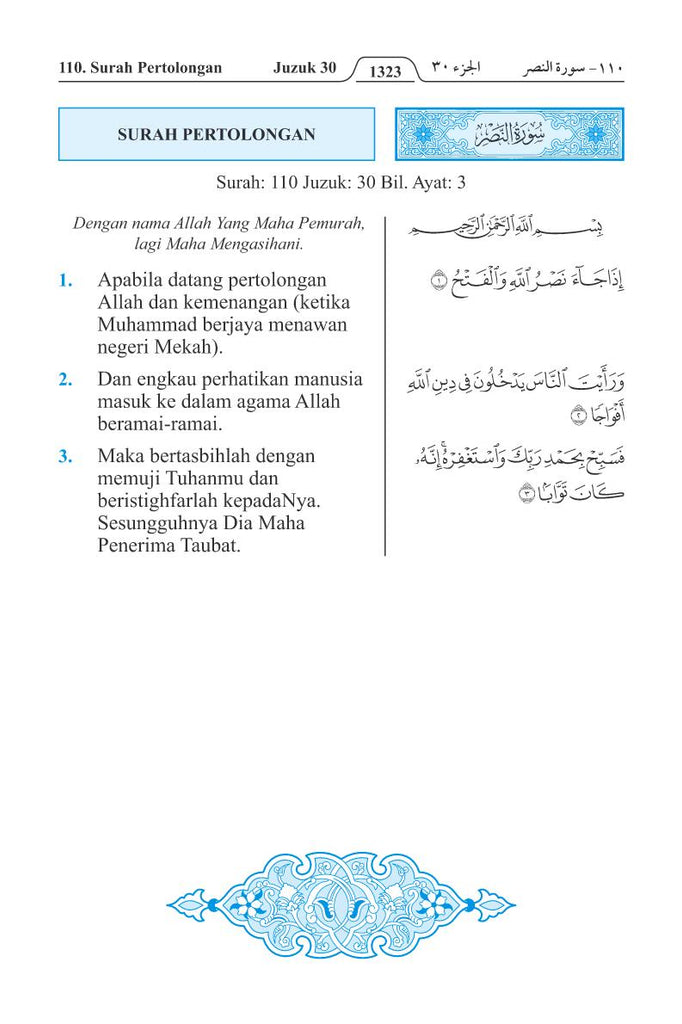 110. Surah Pertolongan Juzuk 30 1323 الجزء ٣٠ ١١٠- سورة النصر
SURAH PERTOLONGAN
سُورَةُ النَّصْرِ
Surah: 110 Juzuk: 30 Bil. Ayat: 3
Dengan nama Allah Yang Maha Pemurah,
lagi Maha Mengasihani.
1. Apabila datang pertolongan
Allah dan kemenangan (ketika
Muhammad berjaya menawan
negeri Mekah).
2. Dan engkau perhatikan manusia
masuk ke dalam agama Allah
beramai-ramai.
3. Maka bertasbihlah dengan
memuji Tuhanmu dan
beristighfarlah kepadaNya.
Sesungguhnya Dia Maha
Penerima Taubat.
بِسْمِ ٱللَّهِ ٱلرَّحْمَٰنِ ٱلرَّحِيمِ
إِذَا جَآءَ نَصْرُ ٱللَّهِ وَٱلْفَتْحُ ١
وَرَأَيْتَ ٱلنَّاسَ يَدْخُلُونَ فِي دِينِ ٱللَّهِ
أَفْوَاجًا ٢
فَسَبِّحْ بِحَمْدِ رَبِّكَ وَٱسْتَغْفِرْهُ ۚ إِنَّهُۥ
كَانَ تَوَّابًۢا ٣